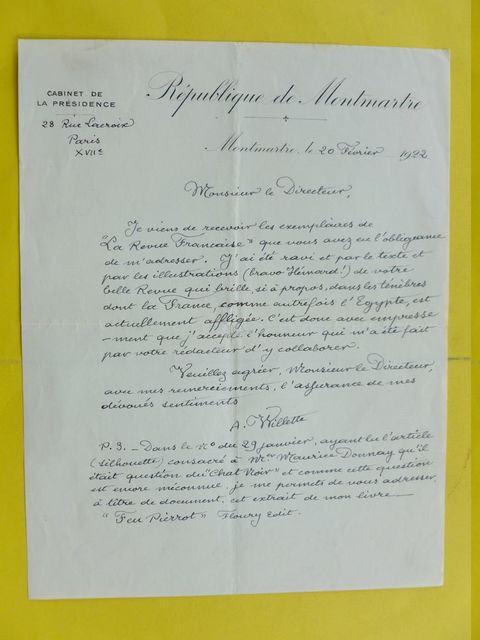 CABINET DE
LA PRÉSIDENCE
28 Rue Lacroix
Paris
XVIIe
République de Montmartre
Montmartre, le 20 Février 1922
Monsieur le Directeur,
Je viens de recevoir les exemplaires de
"La Revue Française" que vous avez eu l'obligeance
de m'adresser. J'ai été ravi et par le texte et
par les illustrations (bravo Hémard!) de votre
belle Revue qui brille, si à propos, dans les ténèbres
dont la France, comme autrefois l'Egypte, est
actuellement affligée. C'est donc avec empresse
-ment que j'accepte l'honneur qui m'a été fait
par votre rédacteur d'y collaborer.
Veuillez agréer, Monsieur le Directeur,
avec mes remerciements, l'assurance de mes
dévoués sentiments
A. Willette
P.S. – Dans le No du 29 janvier, ayant lu l'article
(silhouette) consacré à Mr Maurice Donnay qu'il
était question du "Chat Noir" et comme cette question
est encore méconnue, je me permets de vous adresser,
à titre de document, cet extrait de mon livre
"Feu Pierrot" Floury Edit.